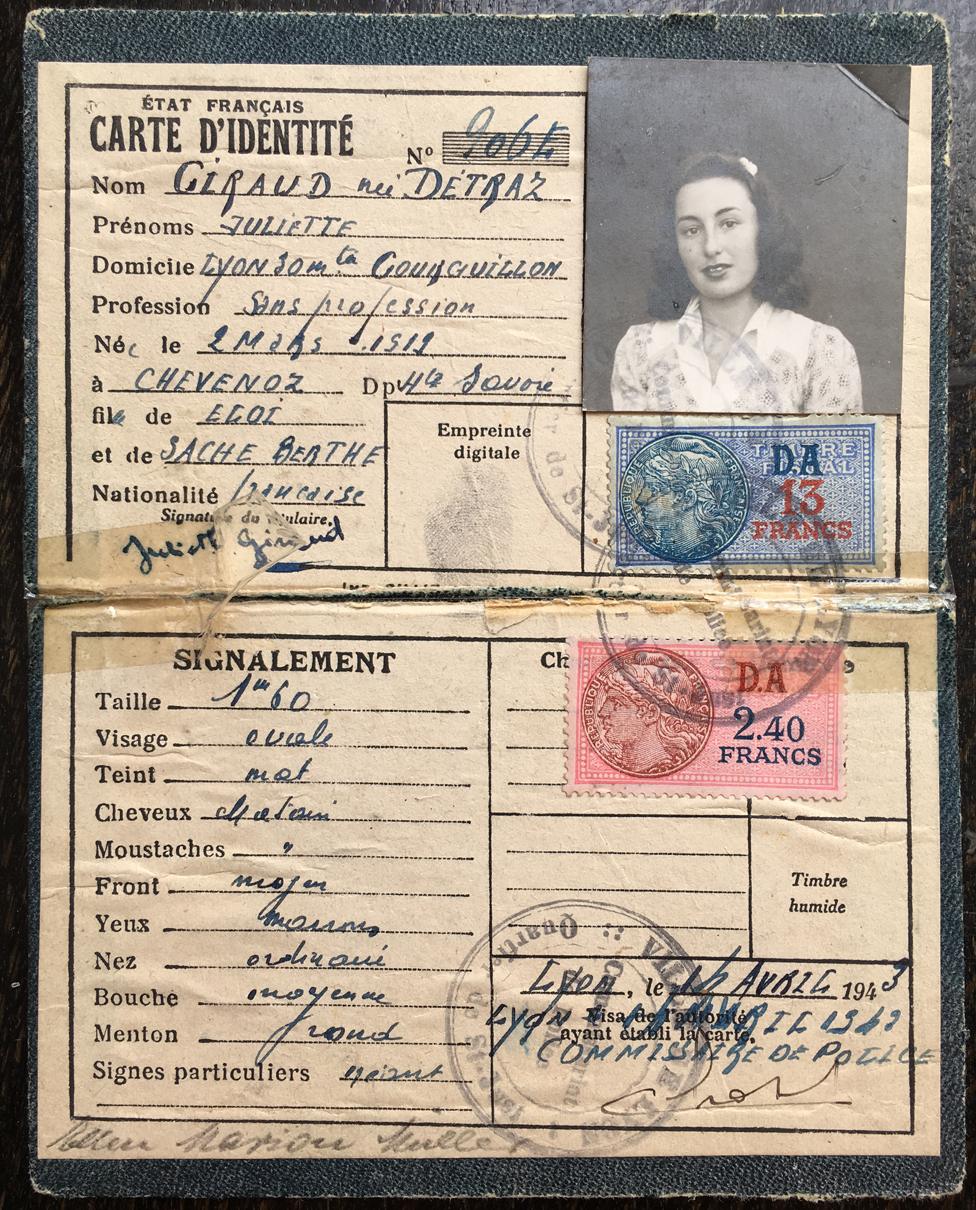 ÉTAT FRANÇAIS
CARTE D'IDENTITÉ
Nº 9064
Nom GIRAUD née DÉTRAZ
Prénoms JULIETTE
Domicile LYON 30 mtée GOURGUILLON
Profession Sans profession
Née le 2 MARS 1919
à CHEVENOZ Dpt Hte Savoie
fille de ELOI
et de SACHE BERTHE
Nationalité française
Signature du titulaire,
Juliette Giraud
Empreinte
digitale
RÉPUBLIQUE FRANÇAISE
TIMBRE
FISCAL
D.A
13
FRANCS
SIGNALEMENT
Taille 1m60
Visage ovale
Teint mat
Cheveux chatain
Moustaches "
Front moyen
Yeux marrons
Nez ordinaire
Bouche moyenne
Menton rond
Signes particuliers néant
Ch
RÉPUBLIQUE FRANÇAISE
D.A
2.40
FRANCS
Timbre
humide
Lyon, le 16 AVRIL 1943
Visa de l'autorité
ayant établi la carte,
COMMISSAIRE DE POLICE
Marion